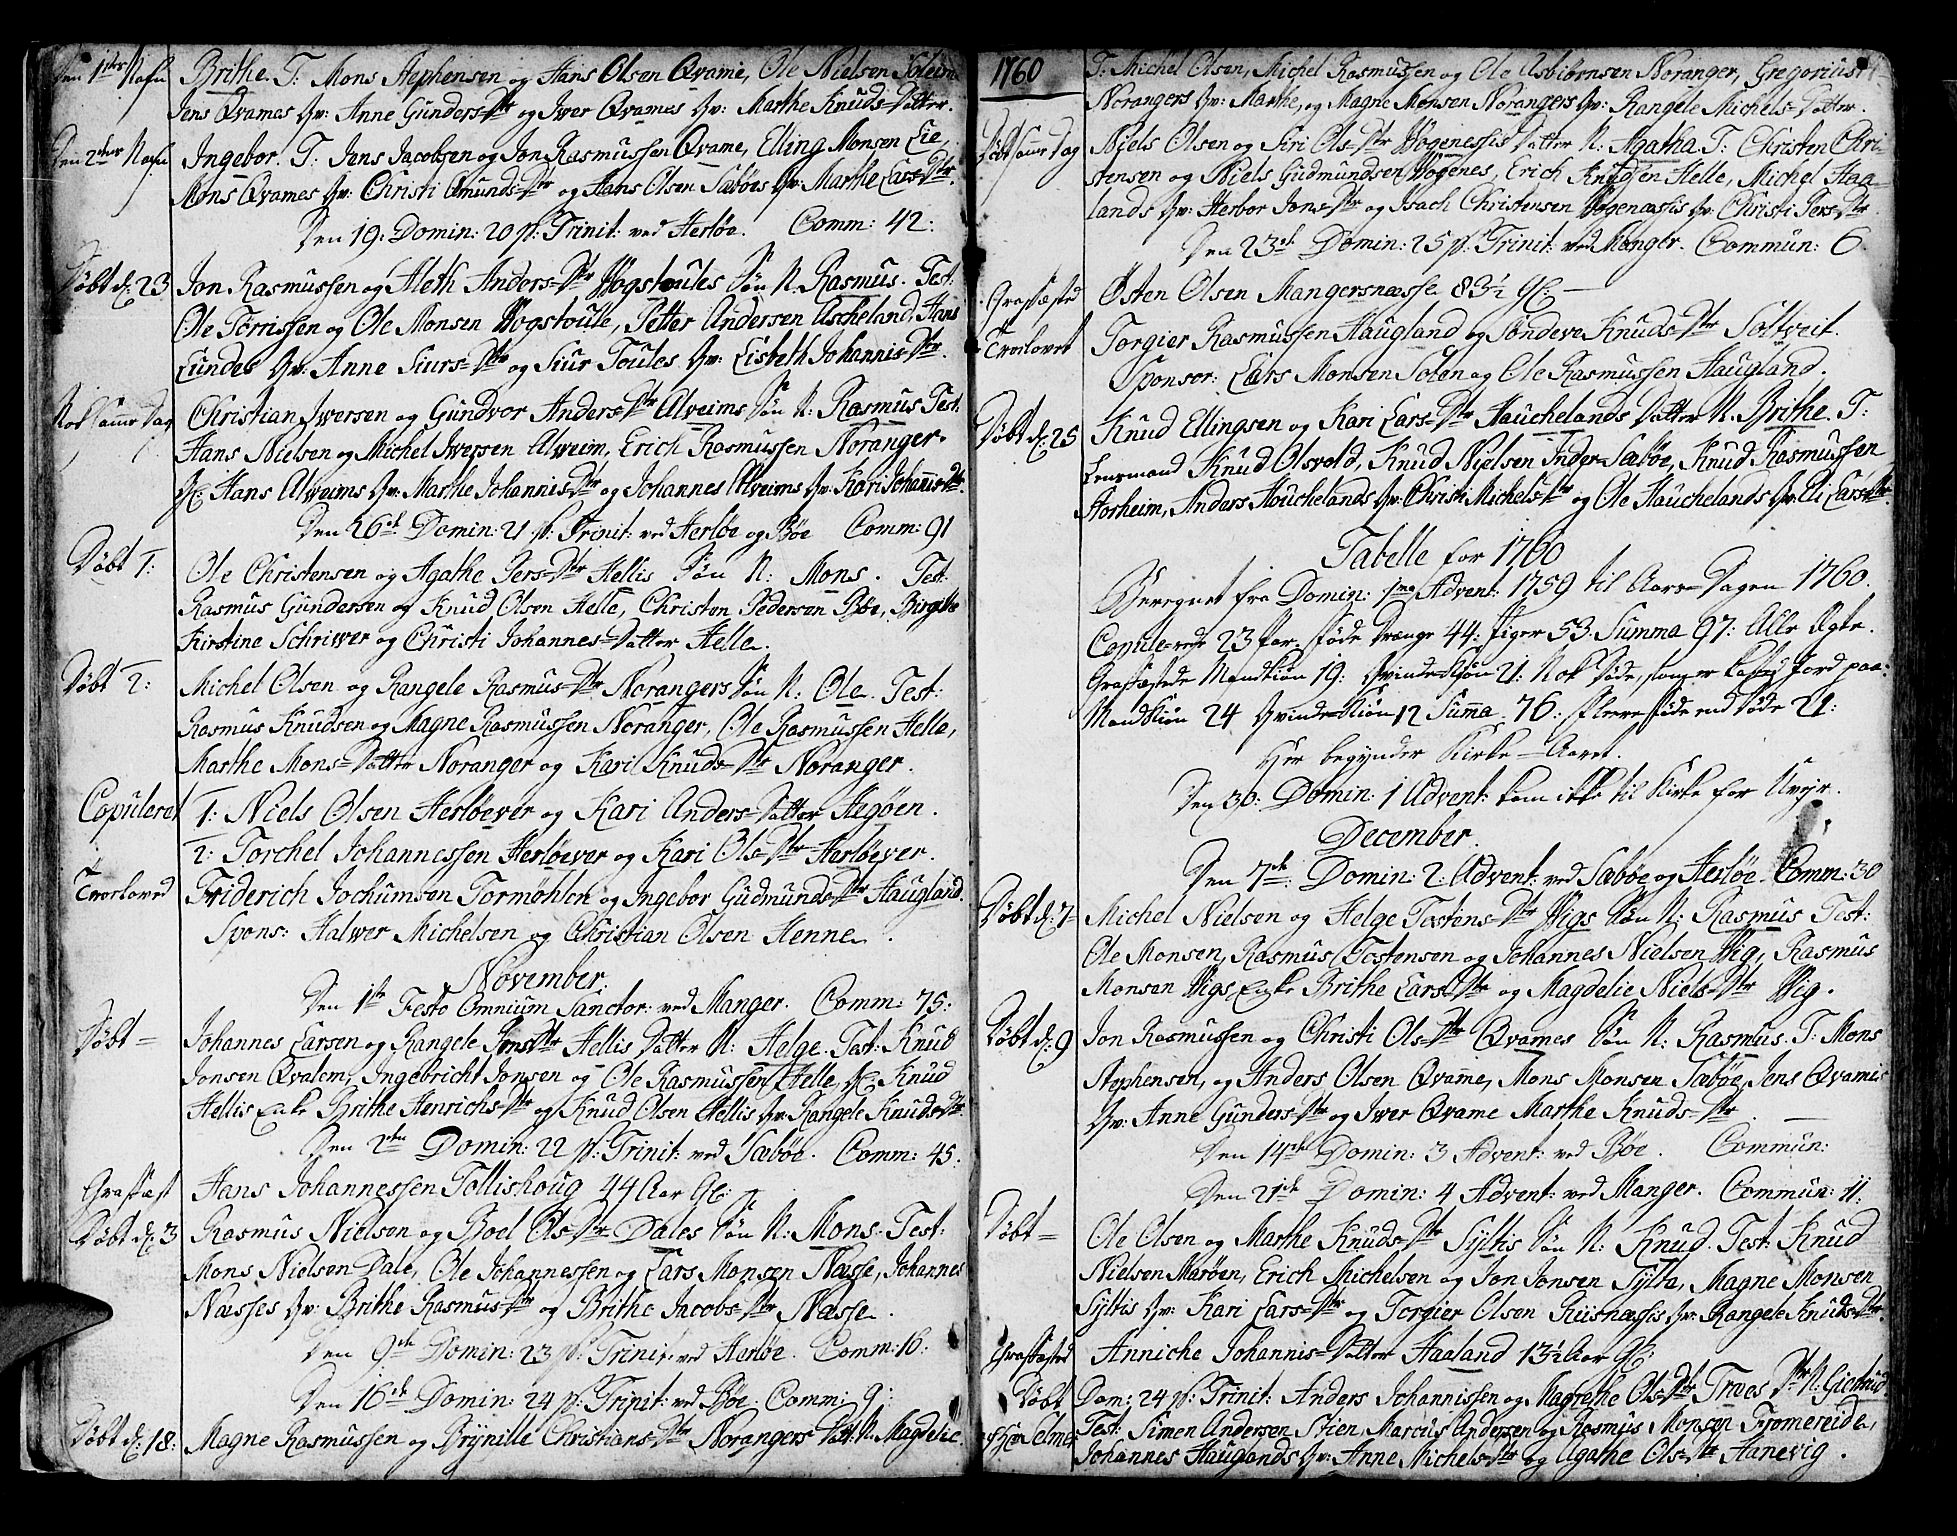 Den 1ste Nafn Brithe. T: Mons Stephensen og Hans Olsen Qvame, Ole Nielsen
Jens Qvames Qv: Anne Gunders-Dtr og Iver Qvames Qv: Marthe Knuds-Datter.
Den 2den Nafn Ingebor. T: Jens Jacobsen og Jon Rasmussen Qvame, Elling Monsen Lie,
Mons Qvames Qv: Christi Amunds-Dtr og Hans Olsen Sæbøes Qv: Marthe Lars-Dtr.
Den 19. Domin: 20 p. Trinit: ved Herløe. Comm: 42:
Døbt d. 23 Jon Rasmussen og Aleth Anders-Dtr Høgstoules Søn N: Rasmus. Test:
Ole Torrissen og Ole Monsen Høgstoule, Petter Andersen Ascheland, Hans
Lundes Qv: Anne Siurs-Dtr og Siur Toules Qv: Lisbeth Johannis-Dtr.
Nok samme Dag Christian Iwersen og Gundvor Anders-Dtr Alveims Søn N: Rasmus Test:
Hans Nielsen og Michel Iwersen Alveim, Erich Rasmussen Noranger.
Hans Alveims Qv: Marthe Johannis-Dtr og Johannes Alveims Qv: Kari Johannis-Dtr.
Den 26de Domin: 21 p. Trinit: ved Herløe og Bøe Comm: 91
Døbt 1: Ole Christensen og Agathe Pers-Dtr Hellis Søn N: Mons. Test:
Rasmus Gundersen og Knud Olsen Helle, Christen Pedersen Bøe, Birgitte
Kirstine Schriwer og Christi Johannes-Datter Helle.
Døbt 2: Michel Olsen og Rangele Rasmus-Dtr Norangers Søn N: Ole. Test:
Rasmus Knudsen og Magne Rasmussen Noranger, Ole Rasmussen Helle,
Marthe Mons-Datter Noranger og Kari Knuds-Dtr Noranger.
Copuleret 1: Niels Olsen Herløever og Kari Anders-Datter Hegøen.
2: Torchel Johannessen Herløever og Kari Ols-Dtr Herløever.
Trolovet Friderich Jochumsen Tormøhlen og Ingebor Gudmunds-Dtr Haugland.
Spons: Halver Michelsen og Christian Olsen Henne.
November.
Den 1ste Festo Omnium Sanctor: ved Manger. Comm: 75:
Døbt = Johannes Larsen og Rangele Jons-Dtr Hellis Datter N: Helge. Test: Knud
Jonsen Qvalem, Ingebricht Jonsen og Ole Rasmussen Helle, Knud
Hellis Enke Brithe Henrichs-Dtr og Knud Olsen Hellis Qv: Rangele Knuds-Dtr.
Den 2den Domin: 22 p. Trinit: ved Sæbøe. Comm: 45.
Graffæst Hans Johannessen Tollishoug 44 Aar Gl:
Døbt d. 3 Rasmus Nielsen og Boel Ols-Dtr Dales Søn N: Mons. Test:
Mons Nielsen Dale, Ole Johannessen og Lars Monsen Næsse, Johannes
Næsses Qv: Brithe Rasmus-Dtr og Brithe Jacobs-Dtr Næsse.
Den 9de Domin: 23 p. Trinit: ved Herløe. Comm: 16:
Den 16de Domin: 24 p. Trinit: ved Bøe. Comm: 9:
Døbt d. 18: Magne Rasmussen og Brynille Christians-Dtr Norangers Datt: N: Magdelie
1760 T: Michel Olsen, Michel Rasmussen og Ole Asbiørnsen Noranger, Gregorius
Norangers Qv: Marthe, og Magne Monsen Norangers Qv: Rangele Michels-Datter.
Døbt samme Dag Niels Olsen og Siri Ols-Dtr Datter N: Agatha T: Christen Chri-
stensen og Niels Gudmundsen, Erich Knudsen Helle, Michel Haa-
lands Qv: Herbor Jons-Dtr og Isach Christensen Qv: Christi Pers-Dtr
Den 23de Domin: 25 p. Trinit: ved Manger. Commun: 6.
Grafffæsted Østen Olsen Mangersnæsse 83½ Gl:
Trolovet Torgier Rasmussen Haugland og Sondeve Knuds-Dtr Soltveit.
Sponsor: Lars Monsen Solen og Ole Rasmussen Haugland.
Døbt d. 25 Knud Ellingsen og Kari Lars-Dtr Hauchelands Datter N. Brithe. T:
Lensmand Knud Olsvold, Knud Nielsen Inder-Sæbøe, Knud Rasmussen
Storheim, Anders Hauchelands Qv: Christi Michels-Dtr og Ole Hauchelands Qv: Eli Lars-Dtr
Tabelle for 1760
Beregnet fra Domin: 1ma Advent: 1759 til Aars-Dagen 1760.
Copulerede 23 Par. Føde Drenge 44: Piger 53: Summa 97: Alle Ægte.
Grafffæstede Mandkiøn 19: Qvinde-Kiøn 21: Nok Døde, som er kasted Jord paa:
Mandkiøn 24 Qvinde-Kiøn 12 Summa 76: Fleere føde end døde 21:
Her begynder Kirke-Aaret.
Den 30: Domin: 1 Advent: kom ikke til Kirke for Uvejr.
December.
Den 7de: Domin: 2: Advent: ved Sæbøe og Herløe. Comm: 30
Døbt d. 7 Michel Nielsen og Helge Tostens-Dtr Wigs Søn N: Rasmus Test:
Ole Monsen, Rasmus Tostensen og Johannes Nielsen Wig, Rasmus
Monsen Wigs Enke Brithe Lars-Dtr og Magdelie Niels-Dtr Wig.
Døbt d. 9 Jon Rasmussen og Christi Ols-Dtr Qvames Søn N: Rasmus. T: Mons
Stephensen, og Anders Olsen Qvame, Mons Monsen Sæbøe, Jens Qvamis
Qv: Anne Gunders-Dtr og Iwer Qvame Marthe Knuds-Dtr
Den 14de Domin: 3 Advent: ved Bøe. Commun:
Den 21de Domin: 4 Advent: ved Manger. Commun: 11:
Døbt = Ole Olsen og Marthe Knuds-Dtr Syltis Søn N: Knud. Test: Knud
Nielsen Marøen, Erich Michelsen og Jon Jonsen Sylta, Magne Monsen
Syltis Qv: Kari Lars-Dtr og Torgier Olsen Riisnæssis Qv: Rangele Knuds-Dtr.
Grafffæsted Anniche Johannis-Datter Haaland 13½ Aar Gl:
Døbt Dom: 24 p. Trinit: Anders Johannissen og Magrethe Ols-Dtr Træes Dtr N: Giertrud
Test: Simen Andersen Stien, Marcus Andersen og Rasmus Monsen Fromereide,
Johannes Hauglands Qv: Anne Michels-Dtr og Agathe Ols-Dtr Hanevig.